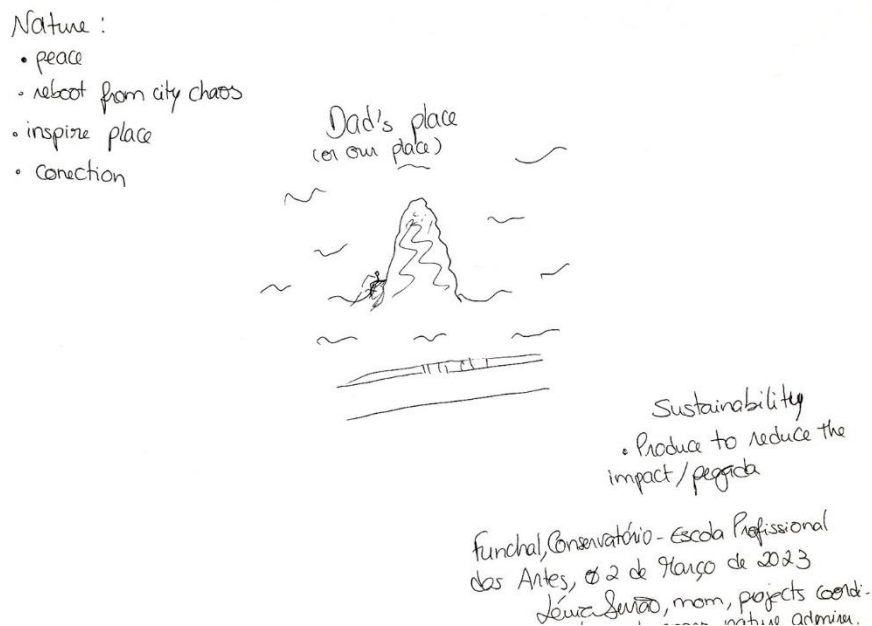 Nature:
• peace
• reboot from city chaos
• inspire place
• conection
Dad's place
(or our place)
Sustainability
• Produce to reduce the
impact/pegada
Funchal, Conservatório - Escola Profissional
das Artes, 02 de Março de 2023
mom, projects coordi-
nature admirer.